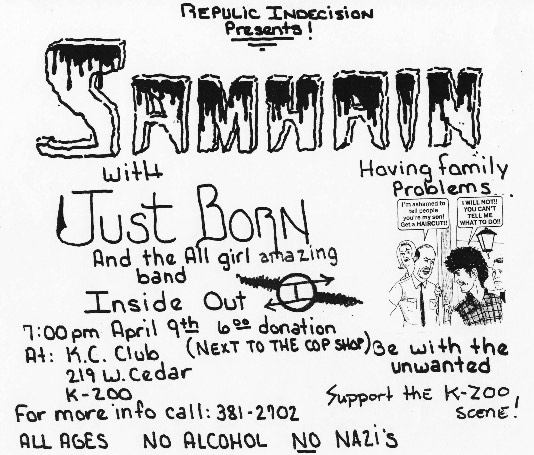 REPULIC INDECISION
Presents!
SAMHAIN
with
JUST BORN
And the All girl amazing
band
Inside Out
I
Having family
Problems
I'm ashamed to
tell people
you're my son!
Get a HAIRCUT!!
I WILL NOT!!
YOU CAN'T
TELL ME
WHAT TO DO!!
7:00pm April 9th 6⁰⁰ donation
At: K.C. Club (NEXT TO THE COP SHOP)
219 W. Cedar
K-ZOO
Be with the
unwanted
For more info call: 381-2702
Support the K-ZOO
SCENE!
ALL AGES NO ALCOHOL NO NAZI's